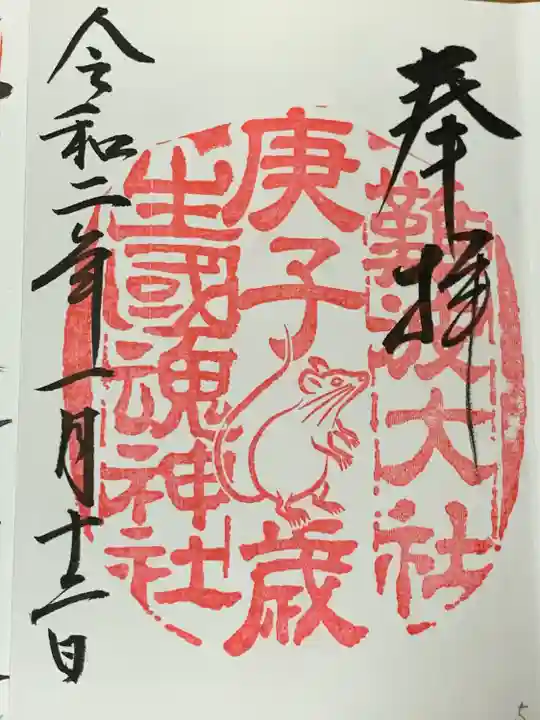 奉拝
難波大社
庚子歳
生國魂神社
令和二年一月十二日
5